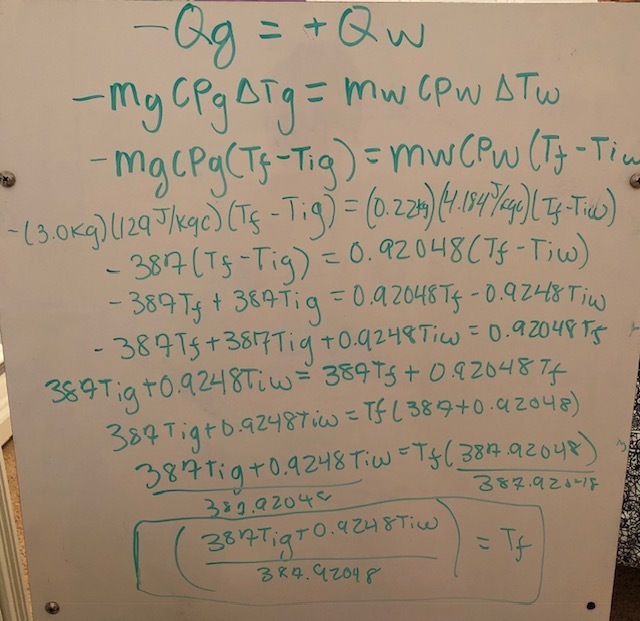 -Qg = +Qw
-mg CPg ΔTg = mw CPw ΔTw
-mgCPg(Tf-Tig) = mwCPw(Tf-Tiw
-(3.0kg)(129 J/kgc)(Tf-Tig) = (0.22kg)(4.184 J/kgc)(Tf-Tiw)
-387(Tf-Tig) = 0.92048(Tf-Tiw)
-387Tf + 387Tig = 0.92048Tf - 0.9248Tiw
-387Tf + 387Tig + 0.9248Tiw = 0.92048Tf
387Tig + 0.9248Tiw = 387Tf + 0.92048Tf
387Tig + 0.9248Tiw = Tf(387 + 0.92048)
387Tig + 0.9248Tiw = Tf(387.92048)
387.92048 387.92048
(387Tig + 0.9248Tiw) = Tf
387.92048